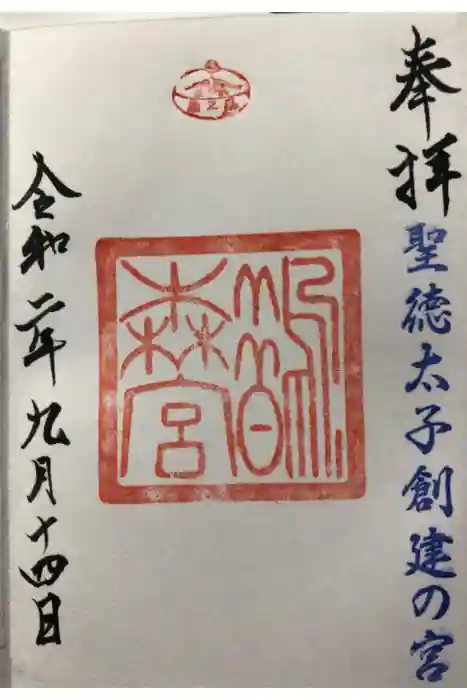 奉拝
聖徳太子創建の宮
鵲森宮
令和二年九月十四日